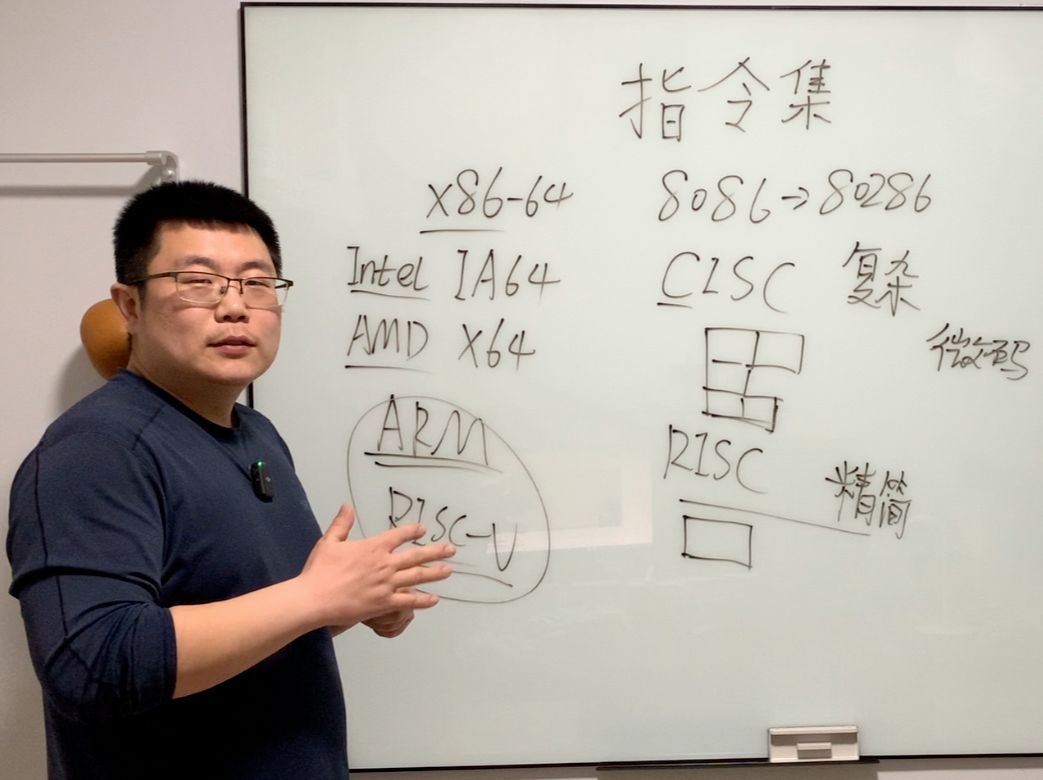 指令集
x86-64
8086→80286
Intel IA64
CISC 复杂
AMD X64
微码
ARM
RISC 精简
RISC-V